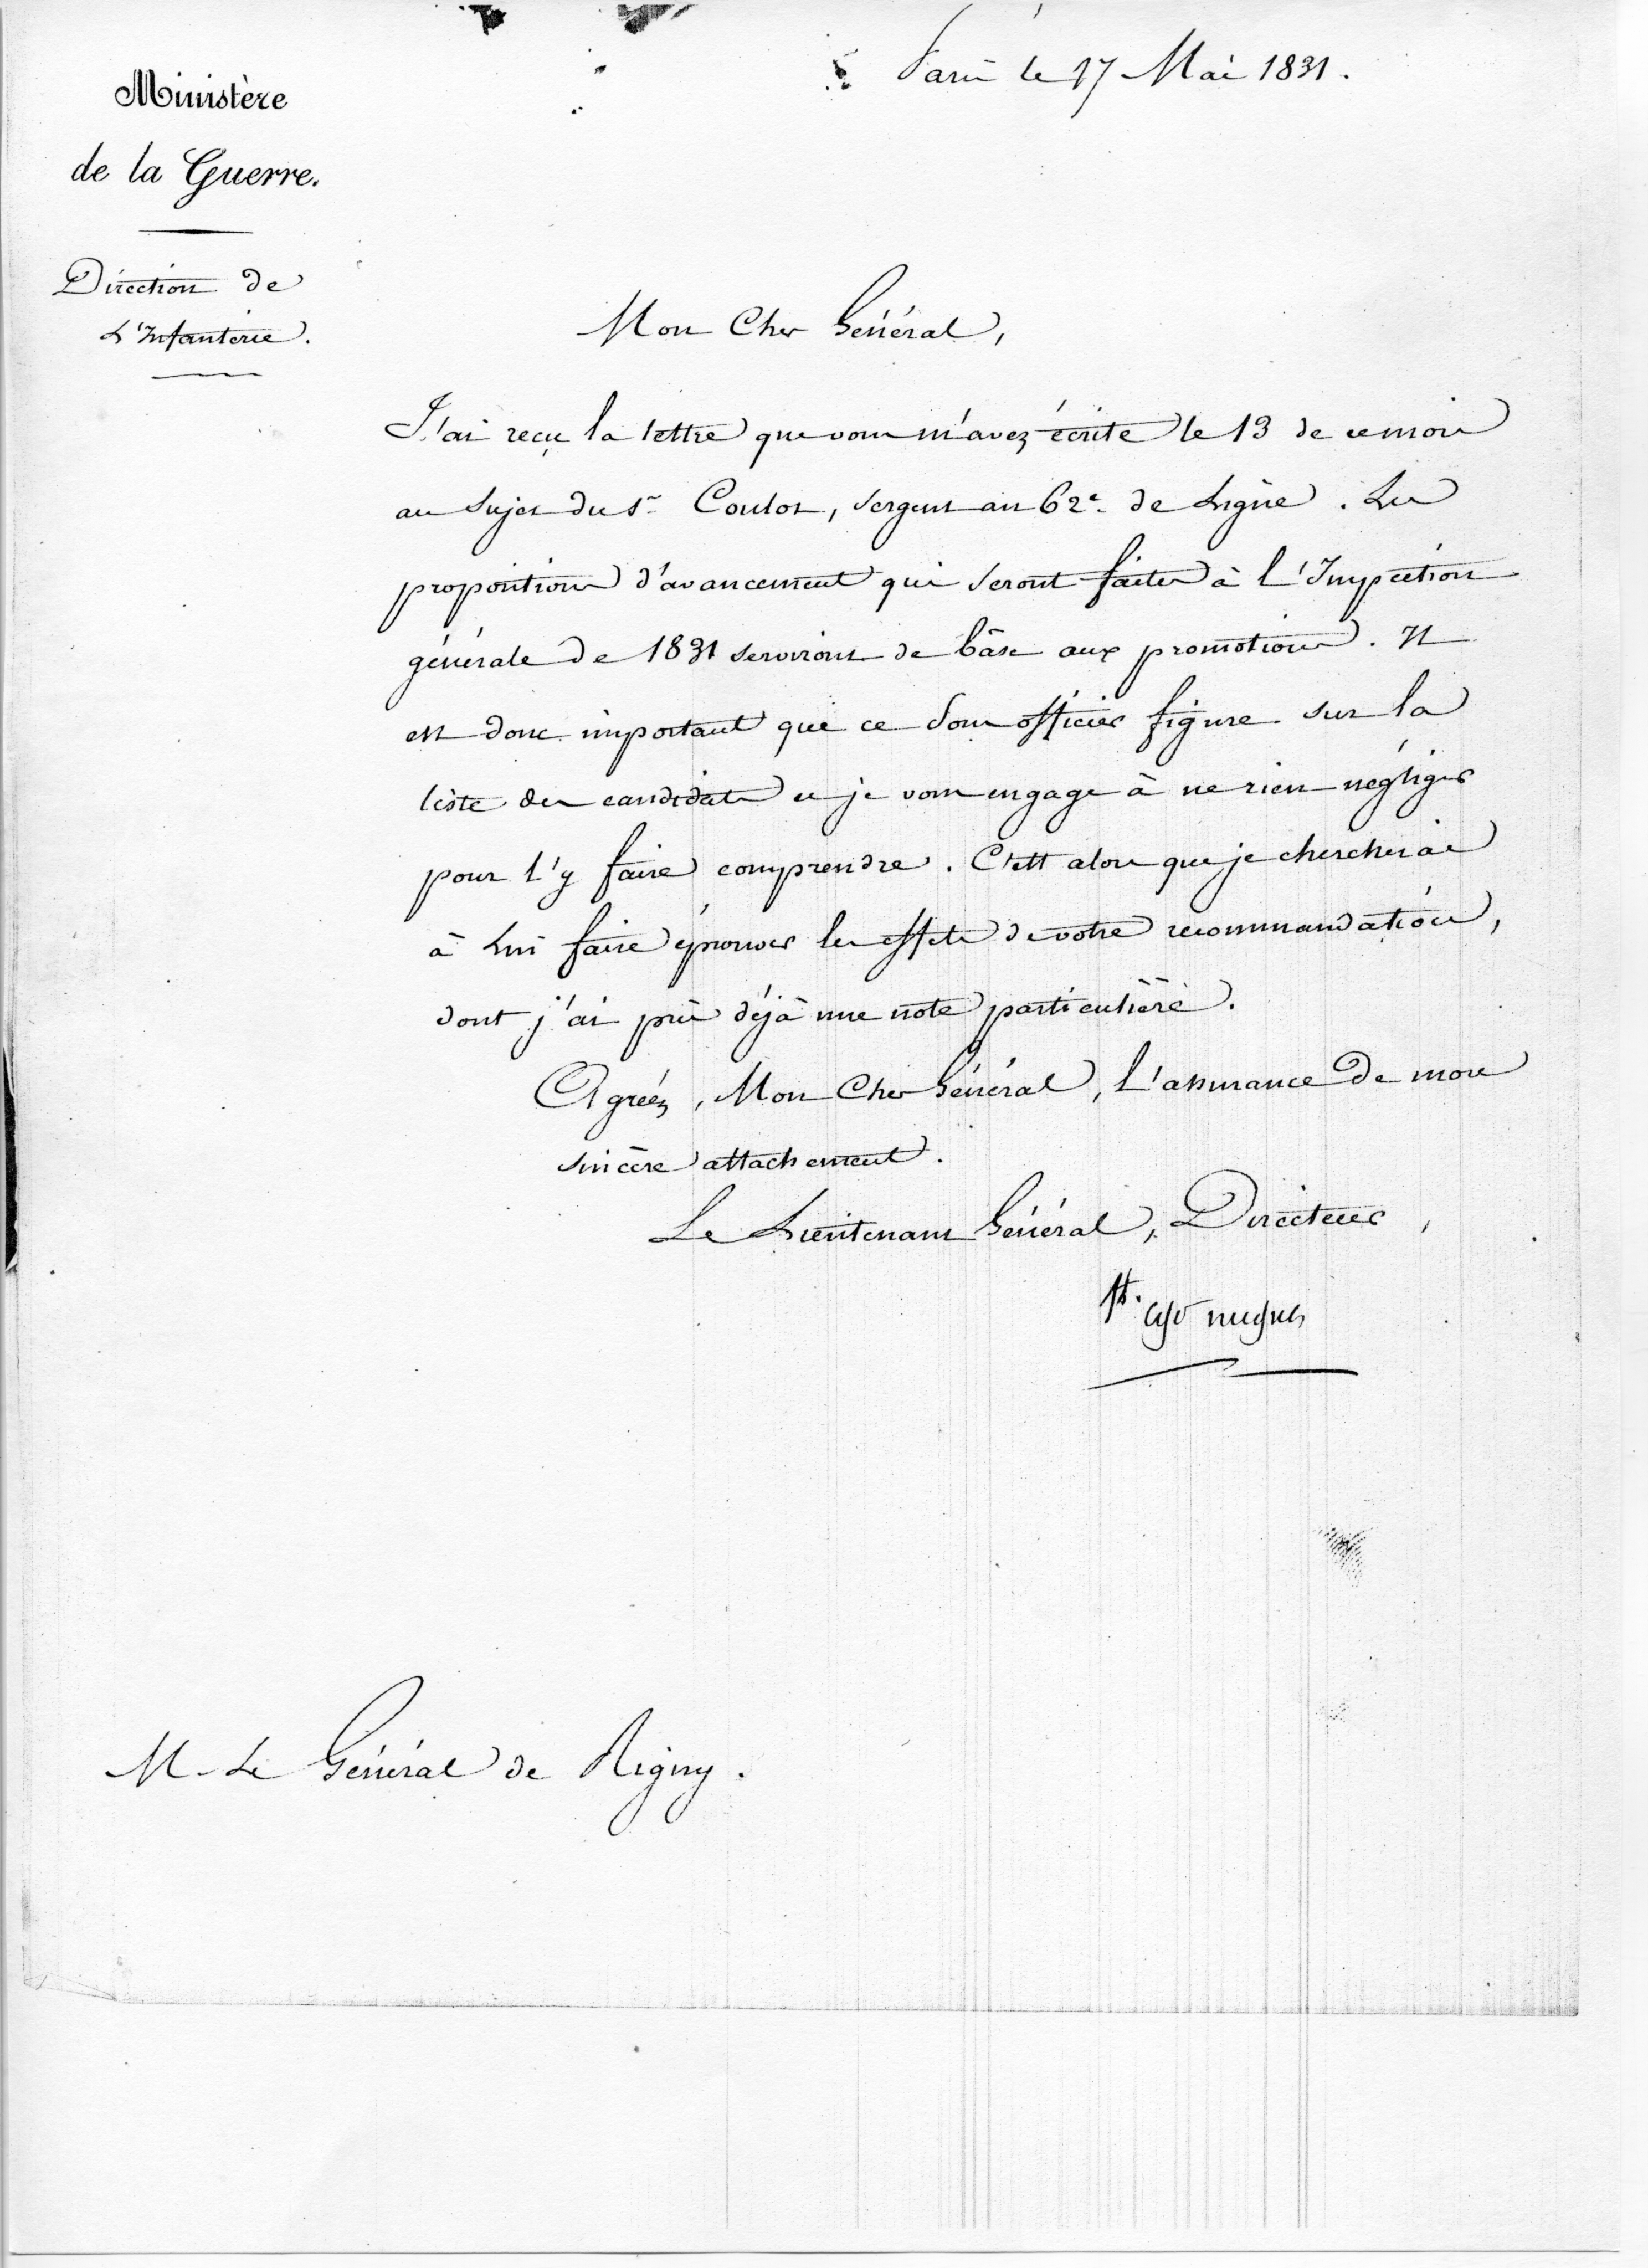 Paris le 17 Mai 1831.
Ministère
de la Guerre.
Direction de
L'Infanterie.
Mon Cher Général,
J'ai reçu la lettre que vous m'avez écrite le 13 de ce mois
au sujet du Sr. Coulot, sergent au 62e. de Ligne. Les
propositions d'avancement qui seront faites à l'Inspection
générale de 1831 serviront de bâse aux promotions. Il
est donc important que ce Sous officier figure sur la
liste des candidats et je vous engage à ne rien négliger
pour l'y faire comprendre. C'est alors que je chercherai
à Lui faire éprouver les effets de votre recommandation,
dont j'ai pris déjà une note particulière.
Agréez, Mon Cher Général, l'assurance de mon
sincère attachement.
Le Lieutenant Général, Directeur,
M. Le Général de Rigny.